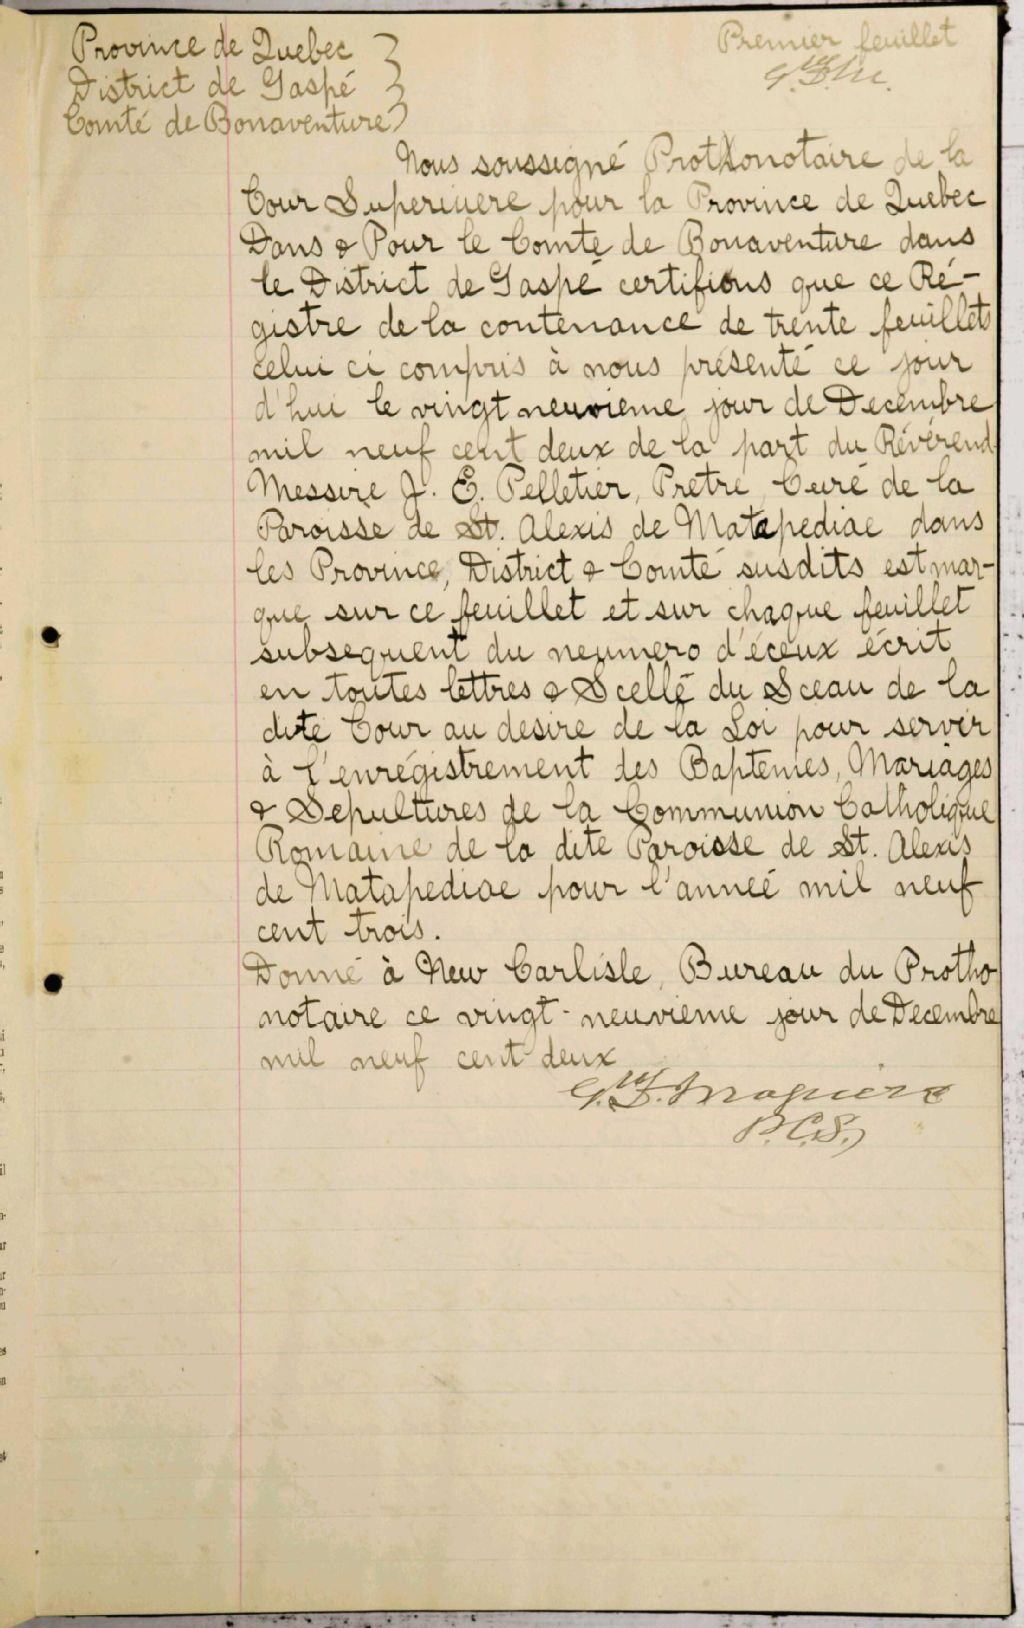 Province de Quebec
District de Gaspé
Comté de Bonaventure
Premier feuillet
Nous soussigné Prothonotaire de la
Cour Superieure pour la Province de Quebec
Dans & Pour le Comte de Bonaventure dans
le District de Gaspé certifions que ce Ré-
gistre de la contenance de trente feuillets
celui ci compris à nous présenté ce jour
d'hui le vingt neuvieme jour de Decembre
mil neuf cent deux de la part du Révérend
Messire J. E. Pelletier, Pretre, Curé de la
Paroisse de St. Alexis de Matapediae dans
les Province, District & Comté susdits est mar-
que sur ce feuillet et sur chaque feuillet
subsequent du neumero d'éceux écrit
en toutes lettres & Scellé du Sceau de la
dite Cour au desire de la Loi pour servir
à l'enrégistrement des Baptemes, Mariages
& Sepultures de la Communion Catholique
Romaine de la dite Paroisse de St. Alexis
de Matapediae pour l'anneé mil neuf
cent trois.
Donné à New Carlisle, Bureau du Protho
notaire ce vingt-neuvieme jour de Decembre
mil neuf cent deux
Maguire
P.C.S.